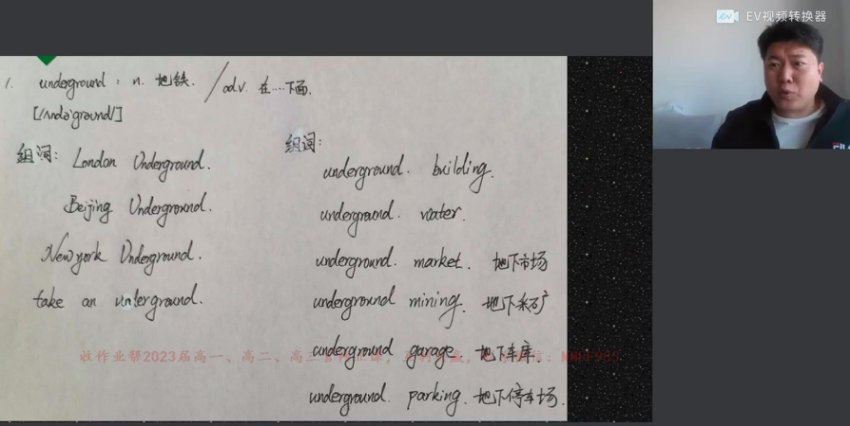 EV视频转换器
1. underground : n. 地铁. / adv. 在....下面.
[/ʌndə'graʊnd/]
组词: London Underground.
Beijing Underground.
New york Underground.
take an underground.
组词:
underground. building.
underground. water.
underground. market. 地下市场
underground mining. 地下采矿
underground garage 地下车库.
underground. parking. 地下停车场.
收作业帮2023届高一、高二、高三